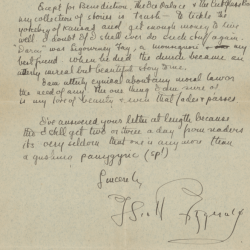 Except for Benediction, The Ice Palace & the Cut Glass Bowl
any collection of stories is trash — to tickle the
yokelry of and get enough money to live
well. I doubt if I shall ever do such stuff again.
"Darcy" was Sigourney Fay, a monsignor & my
best friend. When he died the church became an
utterly unreal but beautiful story to me.
I am utterly cynical about any moral law or
the need of any. The one thing I do
is my love of beauty & even that fades & passes
I've answered your letter at length because
tho I still get two or three a day from readers
its very seldom that one is any more than
a gushing panygyric (sp!)
Sincerely
F Scott Fitzgerald